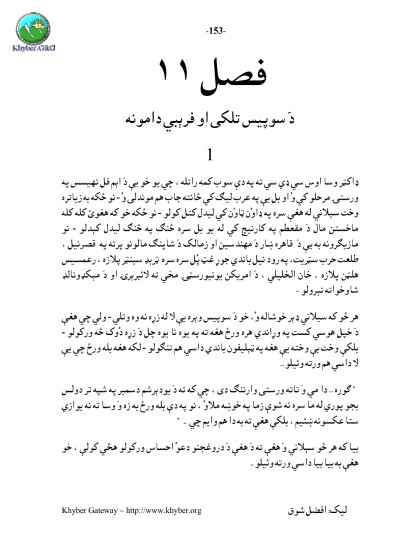 -153-
Khyber.ORG
فصل ۱۱
دَ سوپیس تلکی او فرېبي دامونه
1
ډاکټر وسا اوس سي ډي سي ته په دې سوب کمه راتله ، چي یو خو یې دَ اېم فل تهیسس په
ورستۍ مرحلو کي وُ او بل یې په عرب لیګ کي ځانته جاب هم موندلی وُ - نو ځکه به زیاتره
وخت سیلاني له هغې سره په ډاوُن ټاوُن کي لیدل کتل کولو - نو ځکه خو که هغوئ کله کله
ماخستن مال دَ مقطعم په کارنیچ کي له یو بل سره څنګ په څنګ لیدل کېدلو - نو
مازیګرونه به یې دَ قاهره ښار دَ مهندسین او زمالک دَ شاپنګ مالونو پرته په قصرنیل ،
طلعت حرب سټریټ، په رود نیل باندي جوړ غټ پُل سره سره ټرېډ سېنټر پلازه ، رعمسیس
هلټن پلازه ، خان الخلیلي ، دَ امریکن یونیورسټی مخي ته لائبرېرۍ او دَ مېکډونالډ
شاوخوا ته تېرولو -
هر څو که سیلاني ډېر خوشاله وُ، خو دَ سوپیس وېره یې لا له زړه نه وه وتلې - ولي چي هغې
دَ خپل هوسي کست په وړاندي هره ورځ هغه ته په یوه نا یوه چل دَ زړه دُوک څه ورکولو -
بلکې وخت یې وخته یې هغه په ټېلیفون باندي داسي هم تنګولو - لکه هغه بله ورځ یې یې
لا داسي هم ورته وئیلو..
" ګوره .. دا مي وَ تا ته ورستۍ وارننګ دی ، چي که ته دَ یو دېرشم دسمبر په شپه تر دولس
بجو پوري له ما سره نه شوې زما په خوښه ملاو ٔ ، نو په دې بله ورځ به زه وَ وسا ته نه یوازي
ستا عکسونه ښئیم ، بلکې هغې ته به دا هم وایم چي - "
بیا که هر څو سیلاني وَ هغې ته دَ هغې دَ دروغجنو دعوٰ احساس ورکولو هڅي کولې ، خو
هغې به بیا بیا داسي ورته وئیلو..
Khyber Gateway – http://www.khyber.org
لیک: افضل شوق